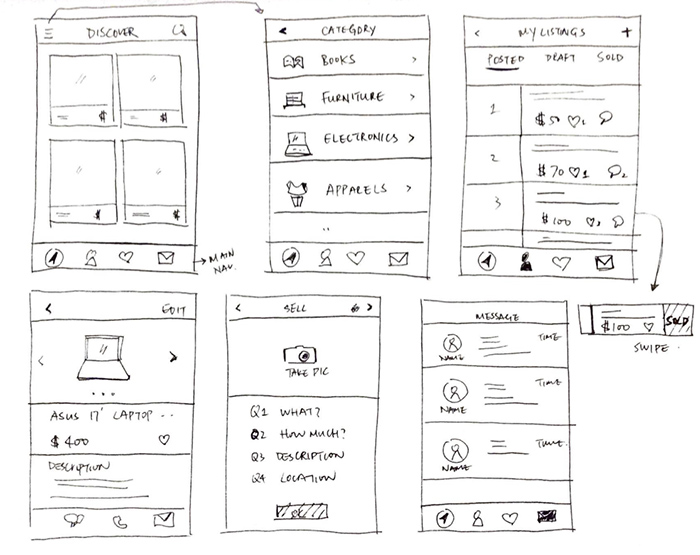 DISCOVER
$ $
$ $
MAIN NAV.
CATEGORY
BOOKS
FURNITURE
ELECTRONICS
APPARELS
MY LISTINGS +
POSTED DRAFT SOLD
1
$50
2
$70 1 2
3
$100
$100 SOLD
SWIPE
EDIT
ASUS 17" LAPTOP ..
$400
DESCRIPTION
SELL
TAKE PIC
Q1 WHAT?
Q2 HOW MUCH?
Q3 DESCRIPTION
Q4 LOCATION
MESSAGE
TIME
NAME
TIME
NAME
TIME
NAME